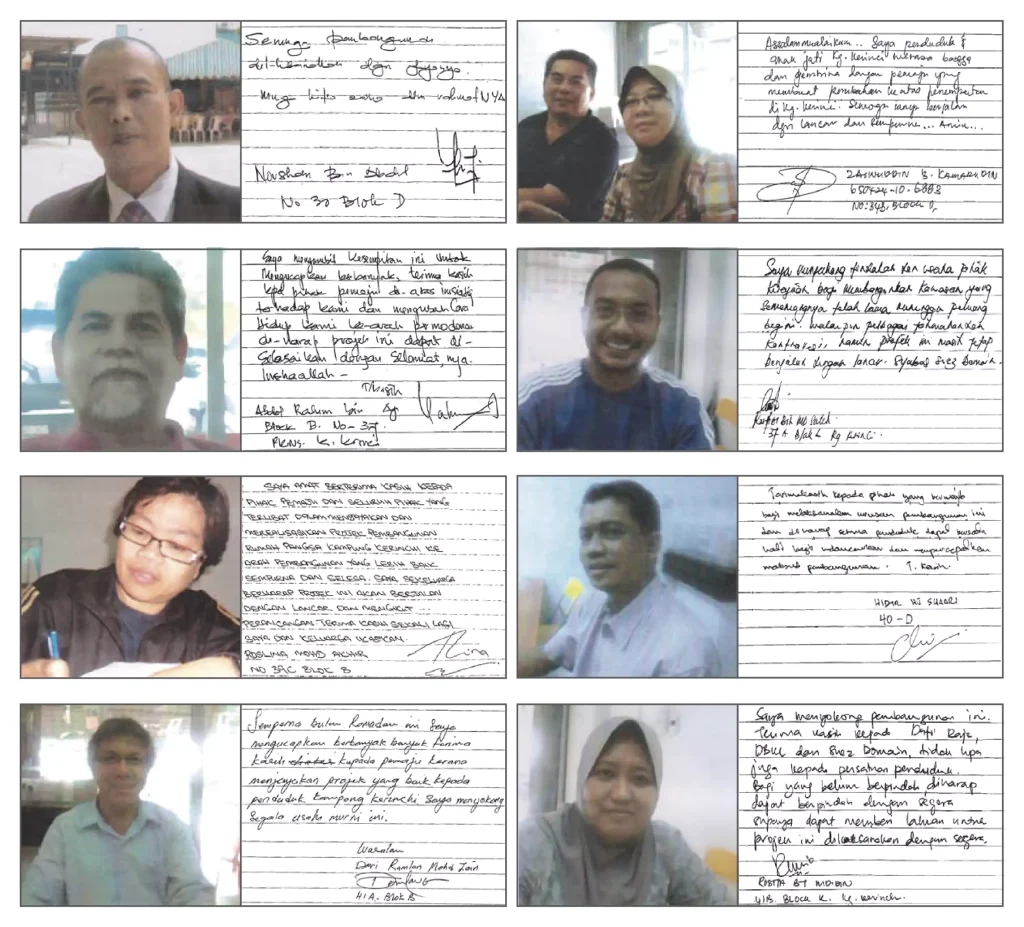 Semuga pembangunan
No 30 Blok D
Assalammualaikum .. Saya penduduk &
anak jati Kg. Kerinci merasa bangga
dan gembira dengan pemaju yang
membuat perubahan keatas penempatan
di Kg. Kerinci. Semoga ianya berjalan
dgn lancar dan sempurna... Amin...
ZAINUDDIN B. KAMARUDIN
NO: 34B, BLOCK D,
Saya mengambil kesempatan ini untuk
Mengucapkan berbanyak, terima kasih
kpd pihak pemaju di-atas inisiatif
terhadap kami dan mengubah Cara
Hidup kami ke-arah permodenan
di-harap projek ini dapat di-
Selasaikan dengan Selamat, nya.
Inshaallah -
T/Kasih
Abdul Rahim bin
Block B. No - 37
PKNS. K. Kerinci
Saya menyokong tindakan dan usaha pihak
kerajaan bagi membangunkan kawasan yang
sememangnya telah lama menunggu peluang
begini. Walau pun pelbagai
namun projek ini masih tetap
berjalan dengan lancar. Syabas Suez Domain.
37 A Blok Kg Krinci.
SAYA AMAT BERTERIMA KASIH KEPADA
PIHAK PEMAJU DAN SELURUH PIHAK YANG
TERLIBAT DALAM MENJAYAKAN DAN
MEREALISASIKAN PROJEK PEMBANGUNAN
RUMAH PANGSA KAMPUNG KERINCHI KE
ARAH PEMBANGUNAN YANG LEBIH BAIK
SEMPURNA DAN SELESA. SAYA SEKELUARGA
BERHARAP PROJEK INI AKAN BERJALAN
DENGAN LANCAR DAN MENGIKUT
PERANCANGAN TERIMA KASIH SEKALI LAGI
SAYA DAN KELUARGA UCAPKAN.
ROSLINA MOHD
NO 39C BLOK B
Terimakasih kepada pihak yang
bagi melaksanakan urusan pembangunan ini
dan diharap semua penduduk dapat
bagi melancarkan dan mempercepatkan
maksud pembangunan. T. Kasih.
40 - D
Sempena bulan Ramadan ini Saya
mengucapkan berbanyak banyak terima
kasih kepada pemaju kerana
menjayakan projek yang baik kepada
penduduk Kampong Kerinchi Saya menyokong
Segala usaha murni ini.
Wasalam
Dari Ramlan Mohd Zain
41A. Blok B
Saya menyokong pembangunan ini.
Terima kasih kepada Dato Raja,
DBKL dan Suez Domain, tidak lupa
juga kepada persatuan penduduk.
Bagi yang belum berpindah, diharap
dapat berpindah dengan segera
supaya dapat memberi laluan untuk
projek ini dilaksanakan dengan segera.
ROBITA BT
41B. Block K. Kg. Kerinchi.